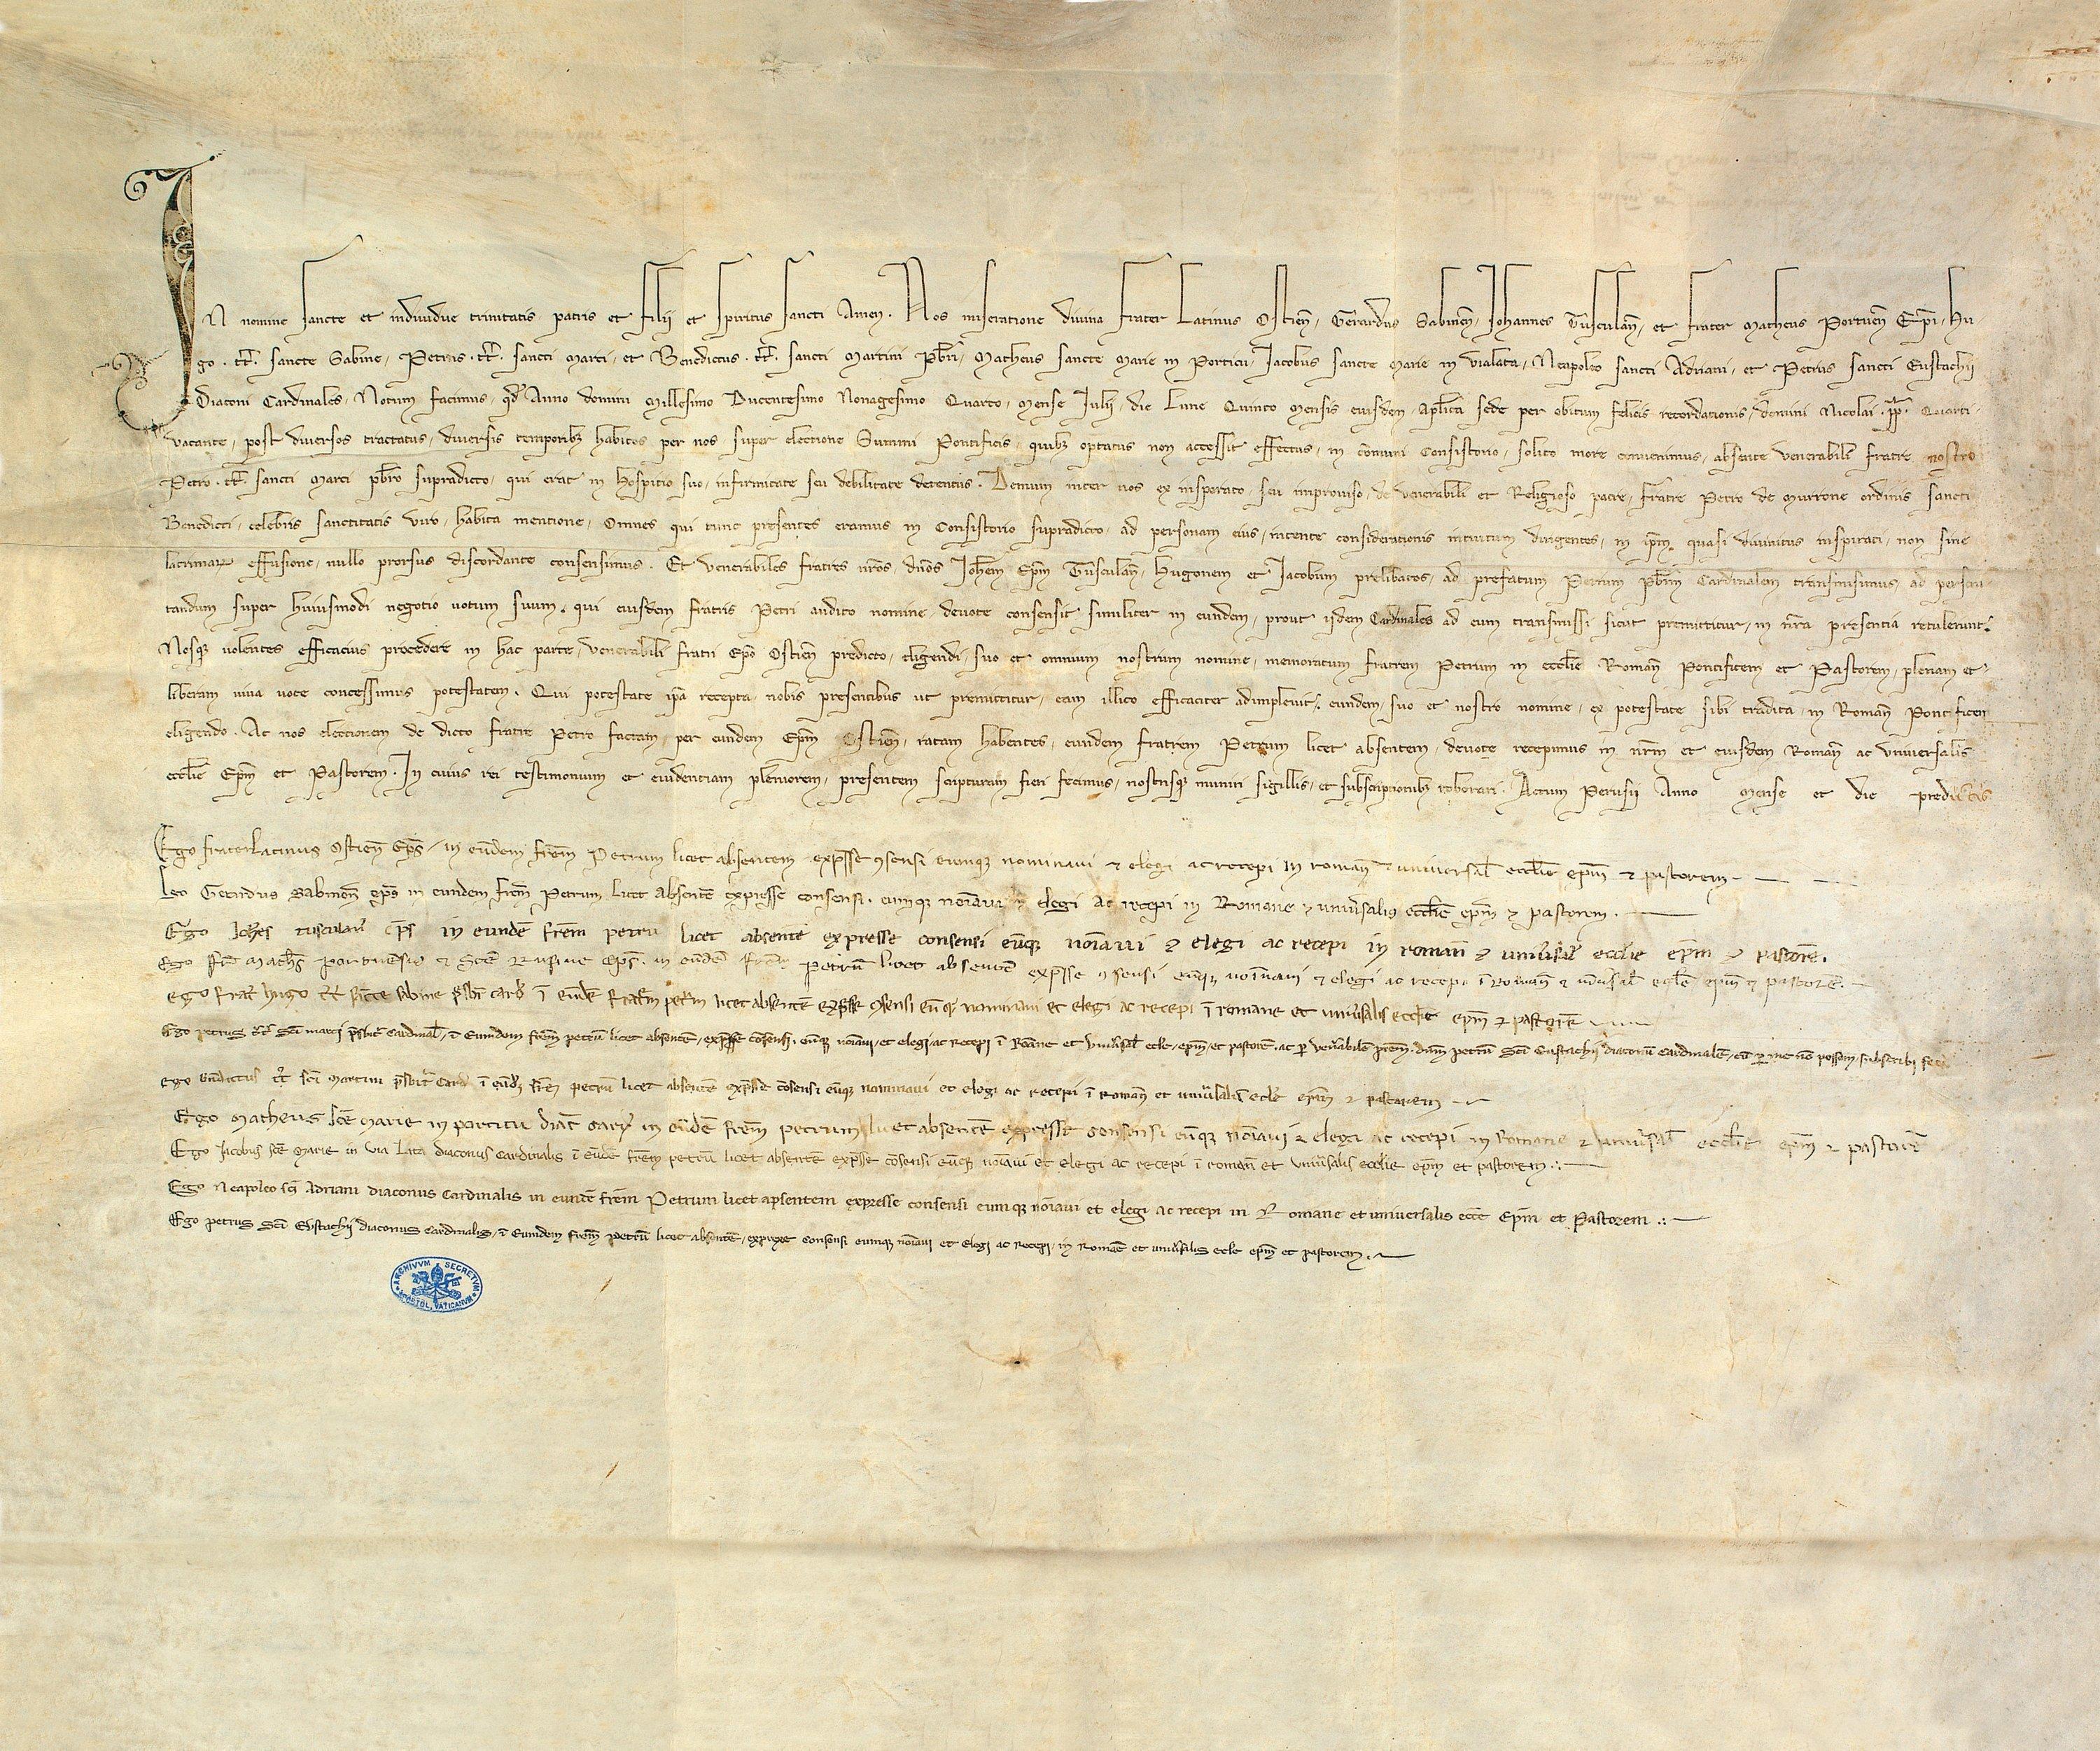 IN nomine sancte et individue trinitatis patris et filii et spiritus sancti Amen. Nos miseratione divina frater Latinus Ostieñ, Gerardus Sabineñ, Iohannes Tusculañ, et frater Matheus Portueñ Ep̄i, Hu-
go .tt̄. sancte Sabine, Petrus .tt̄. sancti Marci, et Benedictus .tt̄. sancti Martini Pb̄ri, Matheus sancte Marie in Porticu, Iacobus sancte Marie in Vialata, Neapoleo sancti Adriani, et Petrus sancti Eustachii
Diaconi Cardinales, Notum facimus, qd̄ Anno domini Millesimo Ducentesimo Nonagesimo Quarto, Mense Iulii, die Lune Quinto mensis eiusdem, Apl̄ica sede per obitum felicis recordationis, domini Nicolai .pp̄. Quarti
vacante, post diversos tractatus, diversis temporibꝫ habitos per nos super electione Summi Pontificis, quibꝫ optatus non accessit effectus, in cōmuni Consistorio, solito more convenimus, absente venerabili fratre nostro
Petro .tt̄. sancti Marci pb̄ro supradicto, qui erat in hospitio suo, infirmitate seu debilitate detentus. Demum inter nos ex insperato, seu improviso, de venerabili et Religioso patre, fratre Petro de Murrone ordinis sancti
Benedicti, celebris sanctitatis viro, habita mentione, Omnes qui tunc presentes eramus in Consistorio supradicto, ad personam eius, intente considerationis intuitum dirigentes, in ip̄m quasi divinitus inspirati, non sine
lacrimaꝝ effusione, nullo prorsus discordante consensimus. Et venerabiles fratres nr̄os, dn̄os Ioh̄em Ep̄m Tusculañ, Hugonem et Iacobum prelibatos, ad prefatum Petrum Pb̄rm Cardinalem transmisimus, ad perscru-
tandum super huiusmodi negotio votum suum, qui eiusdem fratris Petri audito nomine, devote consensit similiter in eundem, prout iidem Cardinales ad eum transmissi sicut premittitur, in nr̄a presentia retulerunt.
Nosqꝫ volentes efficacius procedere in hac parte, venerabili fratri Ep̄o Ostieñ predicto, eligendi, suo et omnium nostrum nomine, memoratum fratrem Petrum in eccl̄ie Romañ Pontificem et Pastorem, plenam et
liberam viva voce concessimus potestatem. Qui potestate ip̄a recepta, nobis presentibus ut premittitur, eam illico efficaciter adimplevit, eundem, suo et nostro nomine, ex potestate sibi tradita, in Romañ Pontificem
eligendo. Ac nos electionem de dicto fratre Petro factam, per eundem Ep̄m Ostieñ, ratam habentes, eundem fratrem Petrum licet absentem, devote recepimus in nr̄m et eiusdem Romañ ac universalis
eccl̄ie Ep̄m et Pastorem. In cuius rei testimonium et evidentiam pleniorem, presentem scripturam fieri fecimus, nostrisqꝫ muniri sigillis, et subscriptionibꝫ roborari. Actum Perusii Anno Mense et die predictis
Ego frater Latinus Ostieñ Ep̄s, in eūdem fr̄em Petrum licet absentem exp̄sse ꝯsensi eumqꝫ nominavi ⁊ elegi ac recepi in romañ ⁊ universal̄ eccl̄ie ep̄m ⁊ pastorem
Ego Gerardus Sabineñ ep̄s in eundem fr̄em Petrum licet absentē expresse consensi. eumqꝫ noīavi ⁊ elegi ac recepi in Romane ⁊ univ̄salis eccl̄ie ep̄m ⁊ pastorem.
Ego Ioh̄es tusculañ ep̄s in eundē fr̄em petrū licet absentē expresse consensi eūqꝫ noīavi ⁊ elegi ac recepi in romañ ⁊ univ̄sal̄ eccl̄ie ep̄m ⁊ pastorē.
Ego fr̄ Math̄s portuensis ⁊ Scē Rufine ep̄s in eūdē fr̄em petrū licet absentē exp̄sse ꝯsensi eūqꝫ noīnavi ⁊ elegi ac recepi ī Romañ ⁊ univ̄sal̄ eccl̄e ep̄m ⁊ pastorē.
Ego frat̄ hugo tt̄ sancte sabine p̄sbr̄ card̄ ī eūdē fratr̄m petr̄m licet absentē exp̄sse ꝯsensi eūqꝫ nominavi et elegi ac recepi ī romane et univ̄salis eccl̄ie ep̄m ⁊ pastorē
Ego petrus tt̄ Scī marci p̄sbit̄ Cardinal̄, ī Eumdem fr̄em petrū licet absentē, exp̄sse cōsensi, eūqꝫ noīavi, et elegi, ac recepi ī Romane et univ̄sal̄ eccl̄e, ep̄m, et pastorē, ac p̄ ven̄abilē p̄rem, dn̄m petrū Scī Eustachii diaconū Cardinalē, cū p̄ me nō possem, subscribi feci
Ego Bn̄dictus tt̄ scī Martini p̄sbit̄ Card̄ ī eūdē fr̄em petrū licet absentē exp̄sse cōsensi eūqꝫ nominavi et elegi ac recepi ī Romañ et univ̄salis eccl̄e ep̄m ⁊ pastorem
Ego Matheus scē Marie in porticu diac̄ card̄ in eūdē fr̄em petrum licet absentē expresse consensi eūqꝫ noīavi ⁊ elegi ac recepi in Romane ⁊ univ̄sal̄ eccl̄ie ep̄m ⁊ pastorē
Ego Iacobus scē Marie in Via Lata diaconus Cardinalis ī eūdē fr̄em petrū licet absentē exp̄sse cōsensi eūqꝫ noīavi et elegi ac recepi ī romañ et univ̄salis eccl̄ie ep̄m et pastorem
Ego Neapoleo scī Adriani diaconus Cardinalis in eundē frēm Petrum licet apsentem expresse consensi eumqꝫ noīavi et elegi ac recepi in Romane et universalis eccē Ep̄m et Pastorem
Ego petrus Scī Eustachii diaconus Cardinalis, ī Eumdem fr̄em petrū licet absentē, exp̄sse consensi eumqꝫ noīavi et elegi ac recepi, in Romane et univ̄salis eccl̄e ep̄m et pastorem.
ARCHIVVM SECRETVM APOSTOL. VATICANVM